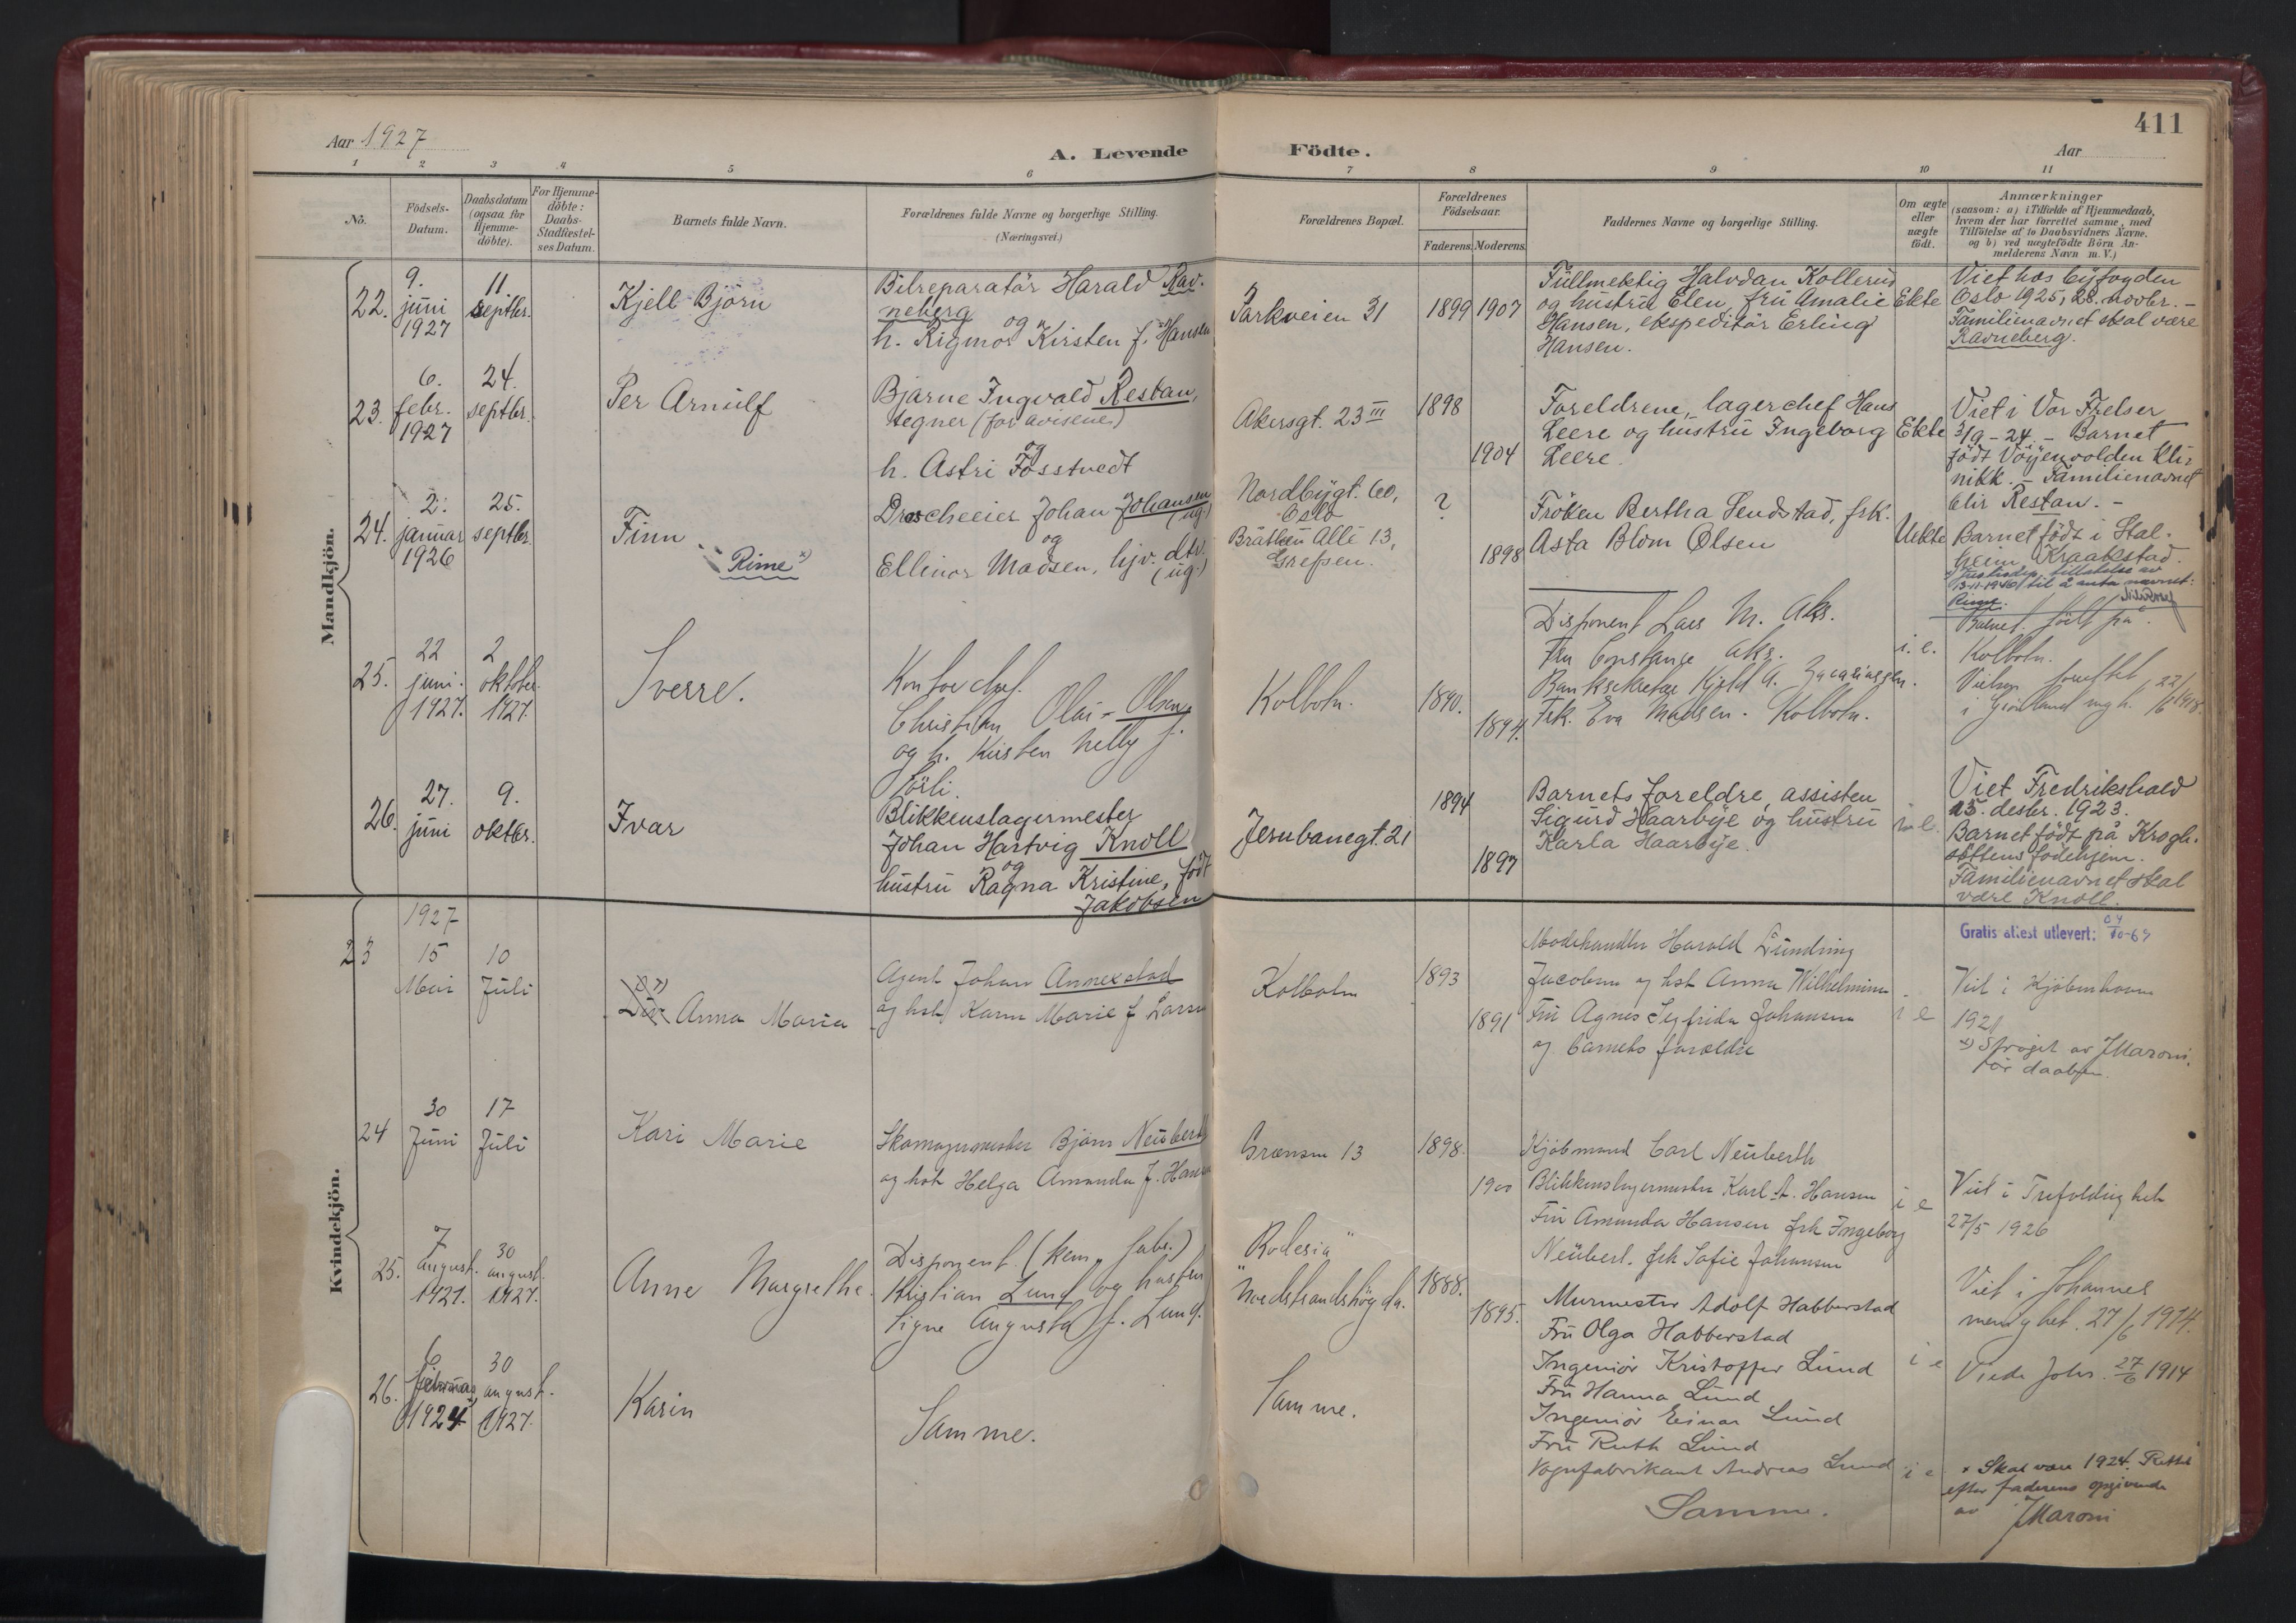 411
Aar 1927
A. Levende Födte.
Aar
1 2 3 4 5 6 7 8 9 10 11
No.
Födsels-
Datum.
Daabsdatum
(ogsaa for
Hjemme-
döbte).
For Hjemme-
döbte:
Daabs-
Stadfæstel-
ses Datum.
Barnets fulde Navn.
Forældrenes fulde Navne og borgerlige Stilling.
(Næringsvei.)
Forældrenes Bopæl.
Forældrenes
Födselsaar.
Faderens. Moderens.
Faddernes Navne og borgerlige Stilling.
Om ægte
eller
uægte
födt.
Anmærkninger
(saasom: a) i Tilfælde af Hjemmedaab,
hvem der har forrettet samme, med
Tilföielse af to Daabsvidners Navne.
og b) ved uægtefödte Börn An-
melderens Navn m. V.)
Mandkjön.
22.
9.
juni
1927
11
septbr.
Kjell Björn
Bilreparatör Harald Rav-
neberg
og
h. Rigmor Kirsten f. Hansen
Parkveien 31
1899 1907
Fullmektig Halvdan Kollerud
og hustru Elen, fru Amalie
Hansen, ekspeditör Erling
Hansen.
Ekte
Viet hos byfogden
Oslo 1925, 28. novbr. -
Familienavnet skal være
Ravneberg.
23.
6.
febr.
1927
24.
septbr.
Per Arnulf
Bjarne Ingvald Restan,
tegner (for avisene)
og
h. Astri Fosstvedt
Akersgt. 23 III
1898
1904
Foreldrene, lagerchef Hans
Leere og hustru Ingeborg
Leere.
Ekte
Viet i Vor Frelser
3/9 - 24. - Barnet
födt Vöyenvolden kli-
nikk. - Familienavnet
blir Restan. -
24.
2.
januar
1926
25.
septbr.
Finn
"Rime" x)
Droscheeier Johan Johansen
(ug.)
og
Ellinor Madsen, hjv. dtr.
(ug.)
Nordbygt. 60,
Oslo
Bråtten Allé 13,
Grefsen.
?
1898
Fröken Bertha Sendstad, frk.
Asta Blom Olsen
Uekte
Barnet födt i Stal-
heim, Kraakstad.
x) Justisdep. tillatelse av
13-11-1940 til å anta navnet:
Rime.
25.
22
juni.
1927.
2
oktober
1927.
Sverre.
Kontorchef.
Christian Olai - Olsen.
og h. Kirsten Nelly f.
Sörli.
Kolbotn.
1890.
1894.
Disponent Lars M. Aks.
Fru Constance Aks.
Banksekretær Kjeld A. Zacariassen.
Frk. Eva Madsen. Kolbotn.
i. e.
Barnet födt på
Kolbotn.
Vielsen forrettet
i Grönland mgh. 22/6 1918.
26.
27.
juni
9.
oktbr.
Ivar
Blikkenslagermester
Johan Hartvig Knoll
og
hustru Ragna Kristine, födt
Jakobsen
Jernbanegt. 21
1894
1897
Barnets foreldre, assisten
Sigurd Haarbye og hustru
Karla Haarbye.
Viet Fredrikshald
25. desbr. 1923.
Barnet födt på Krogh-
stöttens födehjem.
Familienavnet skal
være Knoll.
Kvindekjön.
1927
23
15
Mai
10
Juli
Anna Maria
Agent Johan Annexstad
og hst. Karen Marie f Larsen
Kolbotn
1893
1891
Modehandler Harald Lundring
Jacobsen og hst Anna Wilhelmine
Fru Agnes Segfrida Johansen
og barnets forældre
i e
Gratis attest utlevert: 10-64
Viet i Kjöbenhavn
1921
x) Ströget av JMaroni.
för daaben.
24
30
Juni
17
Juli
Kari Marie
Skomagermester Björn Neuberth
og hst Helga Amanda f. Hansen
Grensen 13
1898.
1900
Kjöbmand Carl Neuberth
Blikkenslagermester Karl A. Hansen
Fru Amanda Hansen frk Ingeborg
Neubert. frk Sofie Johansen
i e
Viet i Trefoldighet
27/5 1926
25.
7
august.
1927.
30
august.
1927.
Anne Margrethe.
Disponent (kem. fabr.)
Kristian Lund og hustru
Signe Augusta f. Lund.
"Rodesia"
Nordstrandshögda.
1888.
1895.
Murmester Adolf Habberstad
Fru Olga Habberstad
Ingeniör Kristoffer Lund
Fru Hanna Lund
Ingeniör Einar Lund
Fru Ruth Lund
Vognfabrikant Andreas Lund
i e
Viet i Johannes
menighet. 27/6 1914.
26.
6
februar
1924
30
august.
1927.
Karin
Samme.
Samme.
Samme.
i e
Viede Johs. 27/6 1914
x Skal være 1924. Rettet
efter faderens opgivende
av JMaroni